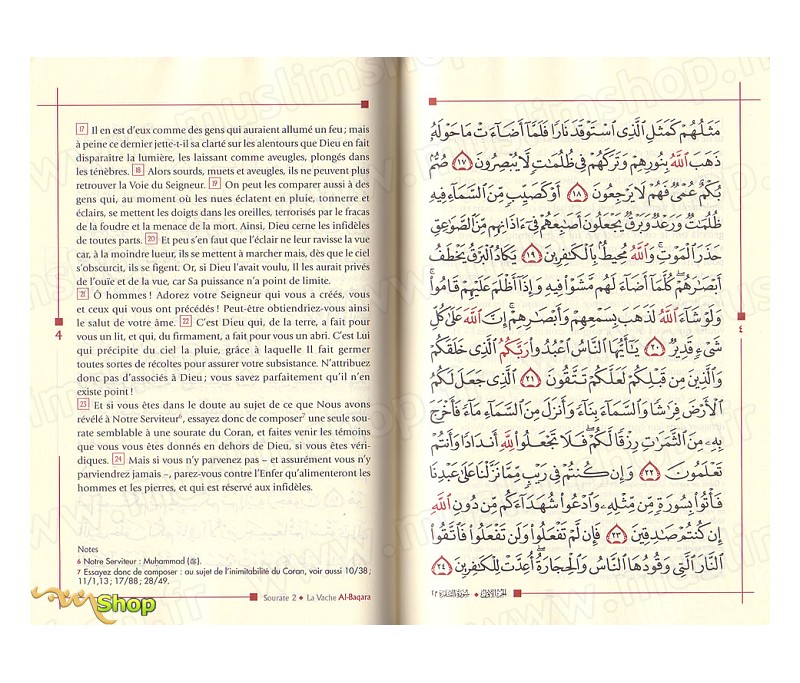 17 Il en est d'eux comme des gens qui auraient allumé un feu ; mais
à peine ce dernier jette-t-il sa clarté sur les alentours que Dieu en fait
disparaître la lumière, les laissant comme aveugles, plongés dans
les ténèbres. 18 Alors sourds, muets et aveugles, ils ne peuvent plus
retrouver la Voie du Seigneur. 19 On peut les comparer aussi à des
gens qui, au moment où les nues éclatent en pluie, tonnerre et
éclairs, se mettent les doigts dans les oreilles, terrorisés par le fracas
de la foudre et la menace de la mort. Ainsi, Dieu cerne les infidèles
de toutes parts. 20 Et peu s'en faut que l'éclair ne leur ravisse la vue
car, à la moindre lueur, ils se mettent à marcher mais, dès que le ciel
s'obscurcit, ils se figent. Or, si Dieu l'avait voulu, Il les aurait privés
de l'ouïe et de la vue, car Sa puissance n'a point de limite.
21 Ô hommes ! Adorez votre Seigneur qui vous a créés, vous
et ceux qui vous ont précédés ! Peut-être obtiendriez-vous ainsi
le salut de votre âme. 22 C'est Dieu qui, de la terre, a fait pour
vous un lit, et qui, du firmament, a fait pour vous un abri. C'est Lui
qui précipite du ciel la pluie, grâce à laquelle Il fait germer
toutes sortes de récoltes pour assurer votre subsistance. N'attribuez
donc pas d'associés à Dieu ; vous savez parfaitement qu'il n'en
existe point !
23 Et si vous êtes dans le doute au sujet de ce que Nous avons
révélé à Notre Serviteur6, essayez donc de composer7 une seule sou-
rate semblable à une sourate du Coran, et faites venir les témoins
que vous vous êtes donnés en dehors de Dieu, si vous êtes véri-
diques. 24 Mais si vous n'y parvenez pas – et assurément vous n'y
parviendrez jamais –, parez-vous contre l'Enfer qu'alimenteront les
hommes et les pierres, et qui est réservé aux infidèles.
4
Notes
6 Notre Serviteur : Muhammad (ﷺ).
7 Essayez donc de composer : au sujet de l'inimitabilité du Coran, voir aussi 10/38 ;
11/1,13 ; 17/88 ; 28/49.
Sourate 2 ◆ La Vache Al-Baqara
Shop
مَثَلُهُمْ كَمَثَلِ ٱلَّذِى ٱسْتَوْقَدَ نَارًا فَلَمَّآ أَضَآءَتْ مَا حَوْلَهُۥ
ذَهَبَ ٱللَّهُ بِنُورِهِمْ وَتَرَكَهُمْ فِى ظُلُمَٰتٍ لَّا يُبْصِرُونَ ١٧ صُمٌّۢ
بُكْمٌ عُمْىٌ فَهُمْ لَا يَرْجِعُونَ ١٨ أَوْ كَصَيِّبٍ مِّنَ ٱلسَّمَآءِ فِيهِ
ظُلُمَٰتٌ وَرَعْدٌ وَبَرْقٌ يَجْعَلُونَ أَصَٰبِعَهُمْ فِىٓ ءَاذَانِهِم مِّنَ ٱلصَّوَٰعِقِ
حَذَرَ ٱلْمَوْتِ ۚ وَٱللَّهُ مُحِيطٌۢ بِٱلْكَٰفِرِينَ ١٩ يَكَادُ ٱلْبَرْقُ يَخْطَفُ
أَبْصَٰرَهُمْ ۖ كُلَّمَآ أَضَآءَ لَهُم مَّشَوْا۟ فِيهِ وَإِذَآ أَظْلَمَ عَلَيْهِمْ قَامُوا۟ ۚ
وَلَوْ شَآءَ ٱللَّهُ لَذَهَبَ بِسَمْعِهِمْ وَأَبْصَٰرِهِمْ ۚ إِنَّ ٱللَّهَ عَلَىٰ كُلِّ
شَىْءٍ قَدِيرٌ ٢٠ يَٰٓأَيُّهَا ٱلنَّاسُ ٱعْبُدُوا۟ رَبَّكُمُ ٱلَّذِى خَلَقَكُمْ
وَٱلَّذِينَ مِن قَبْلِكُمْ لَعَلَّكُمْ تَتَّقُونَ ٢١ ٱلَّذِى جَعَلَ لَكُمُ
ٱلْأَرْضَ فِرَٰشًا وَٱلسَّمَآءَ بِنَآءً وَأَنزَلَ مِنَ ٱلسَّمَآءِ مَآءً فَأَخْرَجَ
بِهِۦ مِنَ ٱلثَّمَرَٰتِ رِزْقًا لَّكُمْ ۖ فَلَا تَجْعَلُوا۟ لِلَّهِ أَندَادًا وَأَنتُمْ
تَعْلَمُونَ ٢٢ وَإِن كُنتُمْ فِى رَيْبٍ مِّمَّا نَزَّلْنَا عَلَىٰ عَبْدِنَا
فَأْتُوا۟ بِسُورَةٍ مِّن مِّثْلِهِۦ وَٱدْعُوا۟ شُهَدَآءَكُم مِّن دُونِ ٱللَّهِ
إِن كُنتُمْ صَٰدِقِينَ ٢٣ فَإِن لَّمْ تَفْعَلُوا۟ وَلَن تَفْعَلُوا۟ فَٱتَّقُوا۟
ٱلنَّارَ ٱلَّتِى وَقُودُهَا ٱلنَّاسُ وَٱلْحِجَارَةُ ۖ أُعِدَّتْ لِلْكَٰفِرِينَ ٢٤
٤